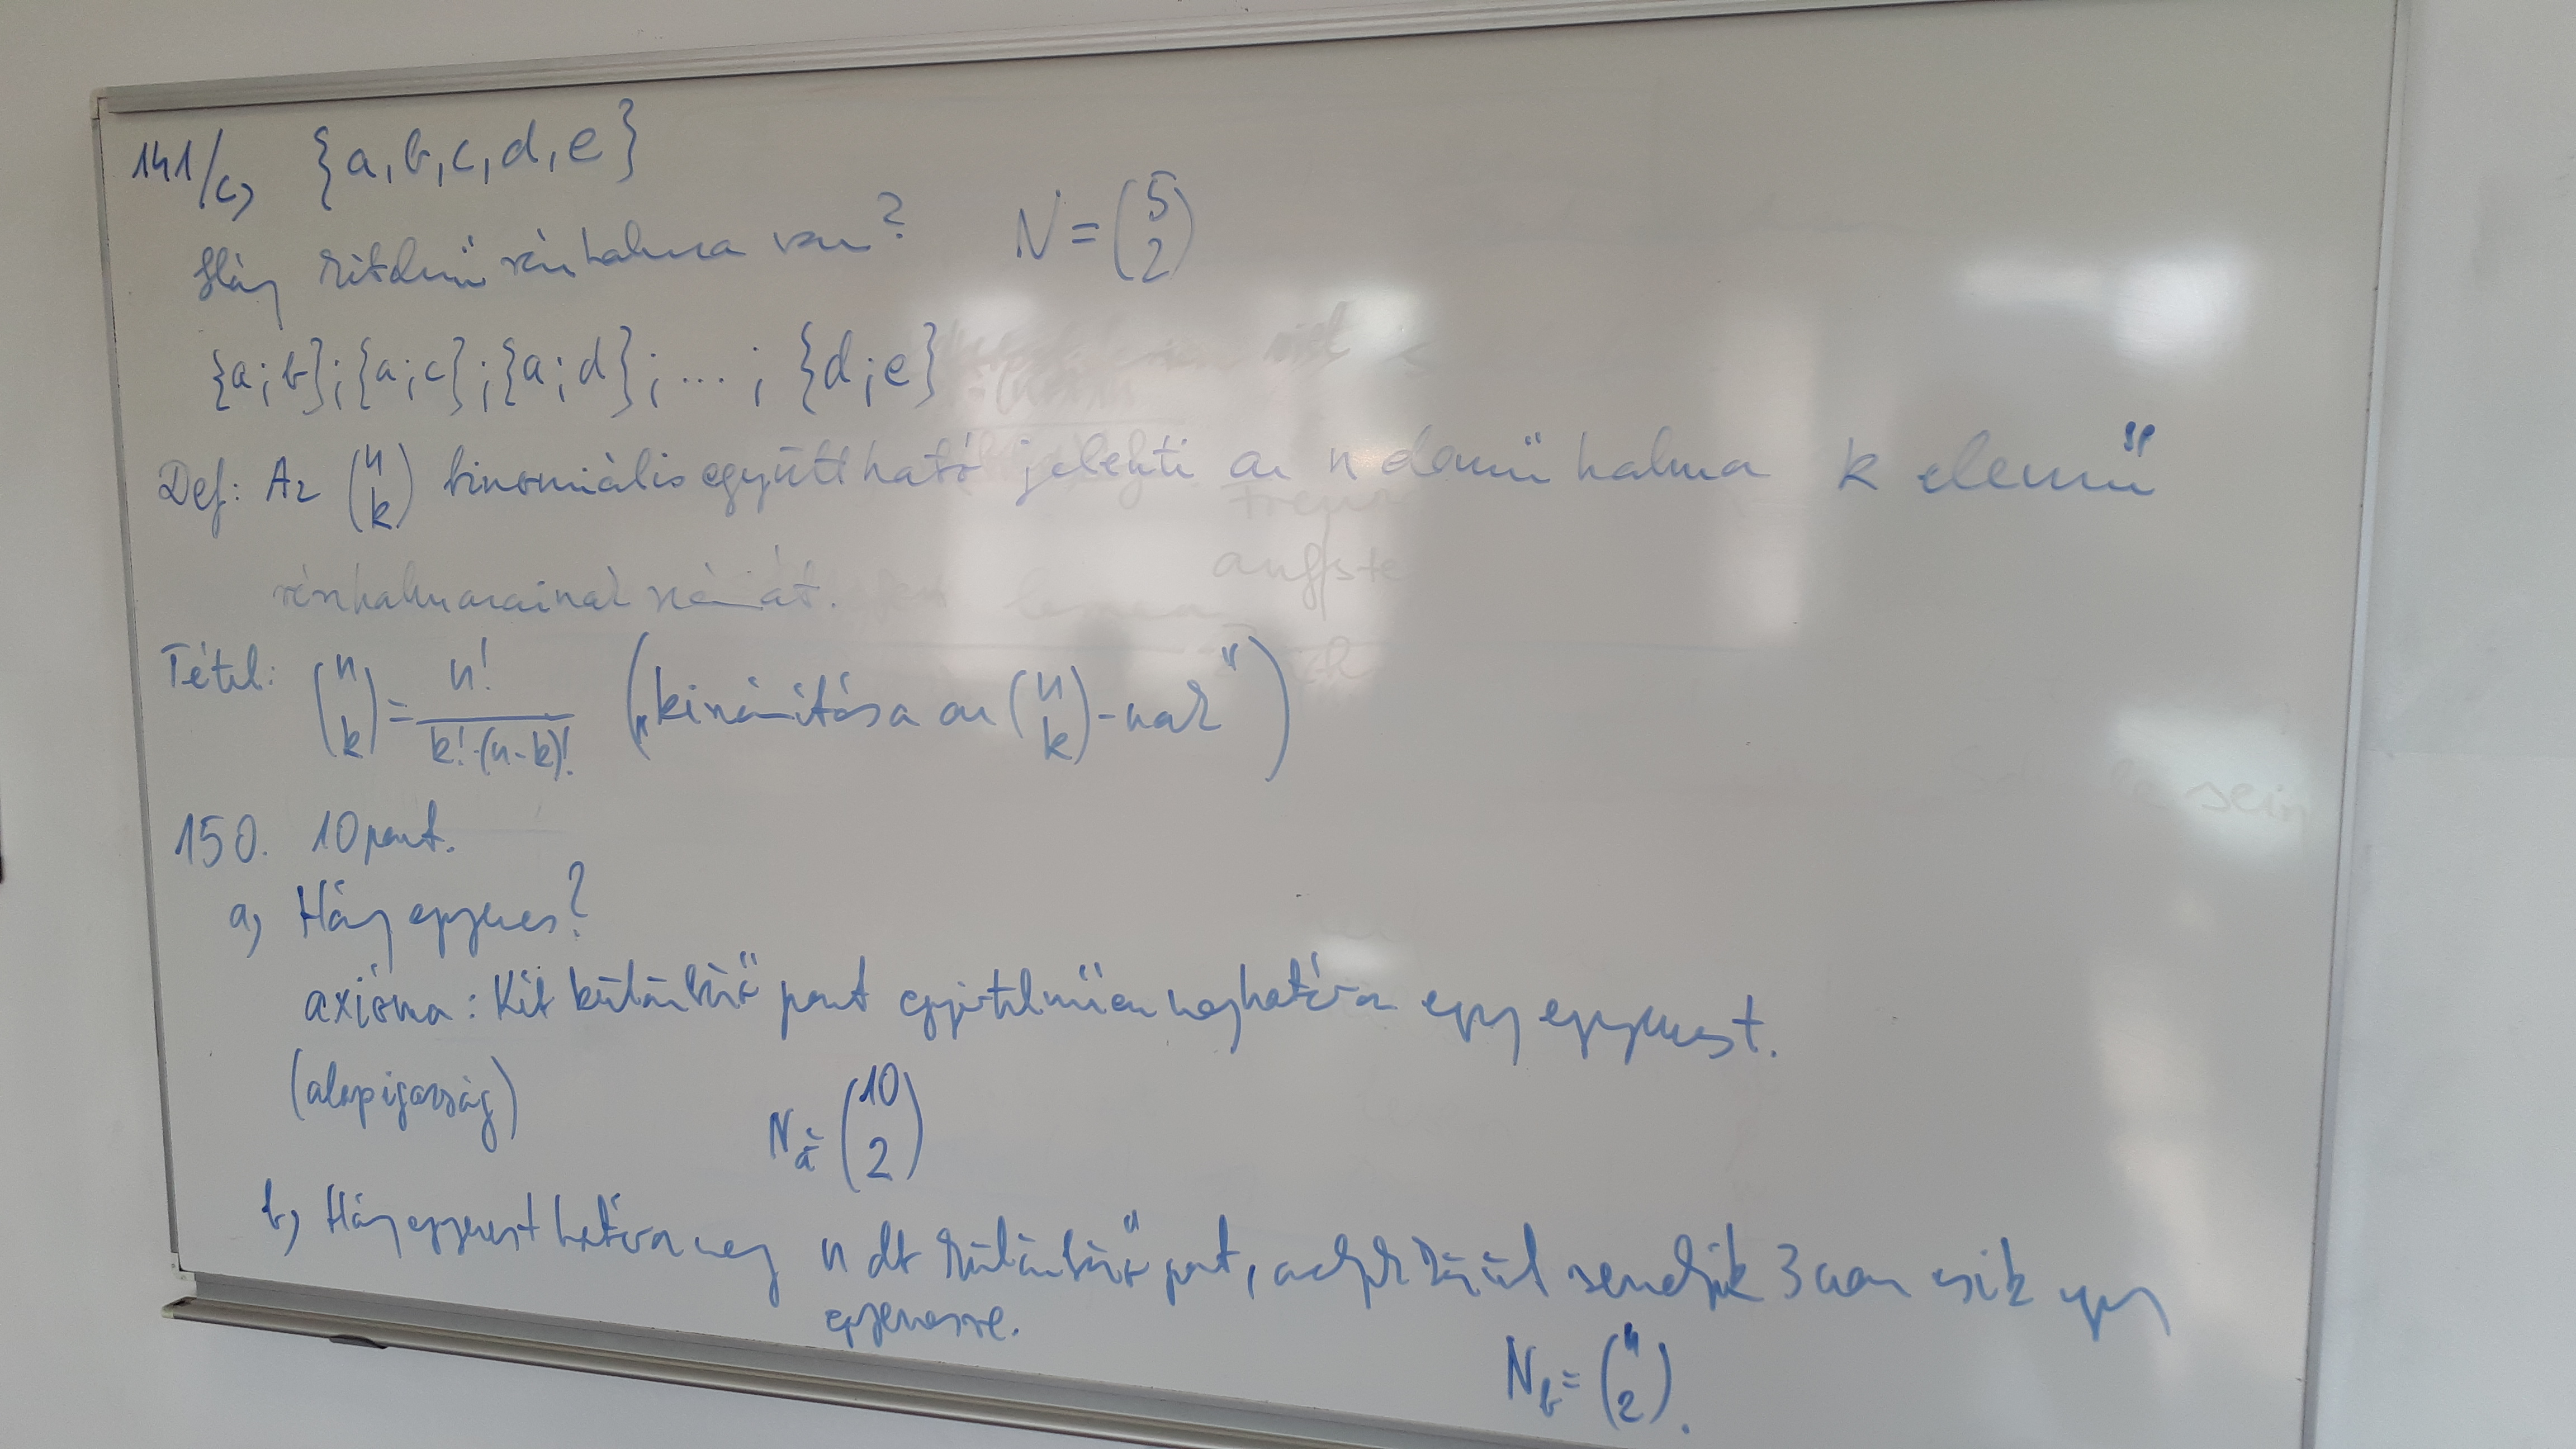 141/c, {a, b, c, d, e}
Hány kételemű részhalmaza van? N = (5 2)
{a; b}; {a; c}; {a; d}; ...; {d; e}
Def: Az (n k) binomiális együttható jelenti az n elemű halmaz k elemű
részhalmazainak számát.
Tétel: (n k) = n! / k!·(n-k)! („kiszámítása az (n k)-nak")
150. 10 pont.
a, Hány egyenes?
axióma: Két különböző pont egyértelműen meghatároz egy egyenest.
(alapigazság)
Na = (10 2)
b, Hány egyenest határoz meg n db különböző pont, amelyek közül semelyik 3 nem esik egy
egyenesre.
Nb = (n 2).